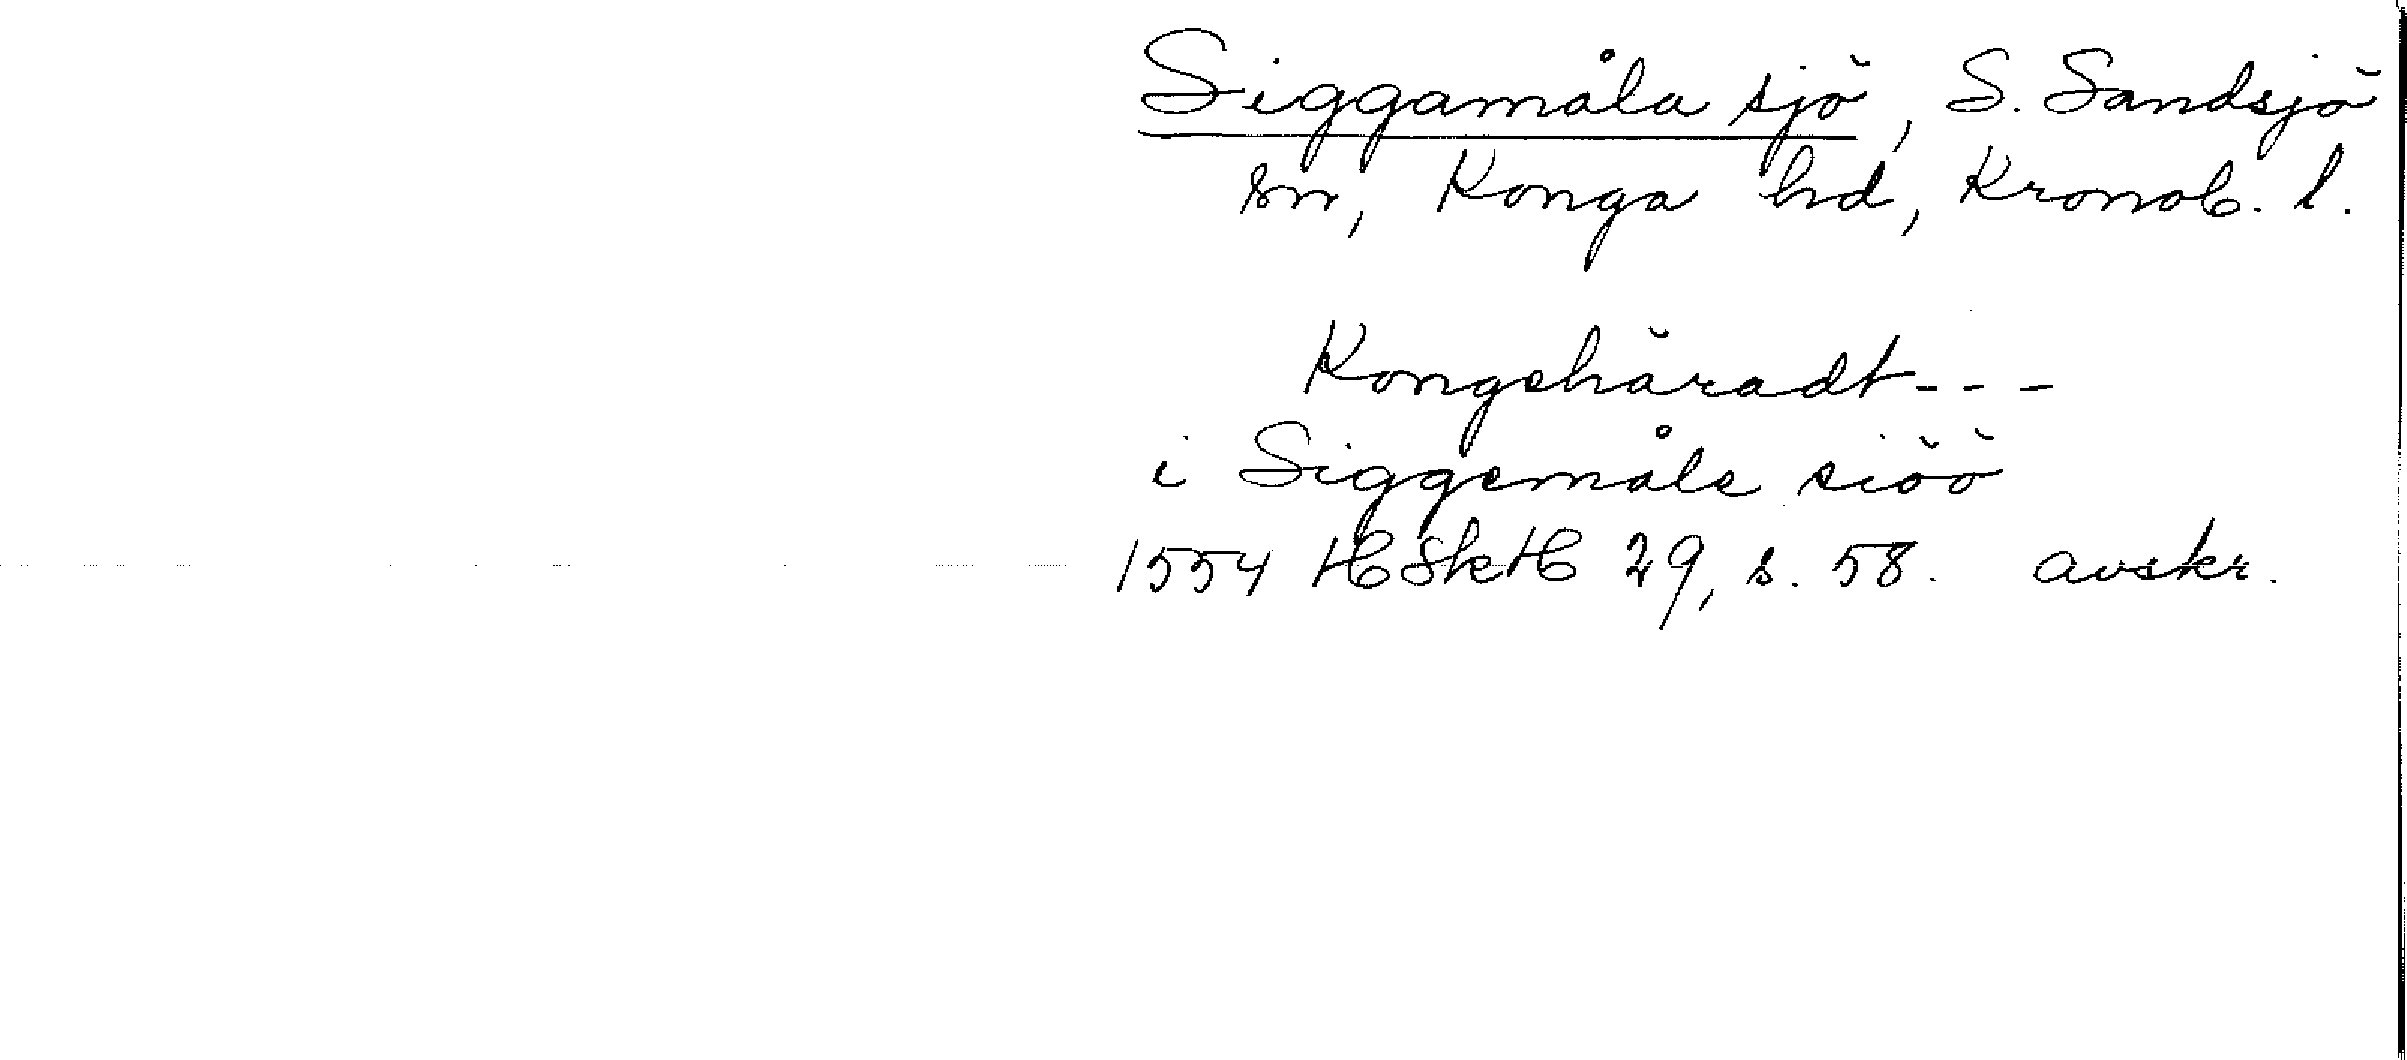 Siggamåla sjö, S. Sandsjö
sn, Konga hd, Kronob. l.
Kongehäradt - - -
i Siggemåle siöö
1554 HSkH 29, s. 58. avskr.